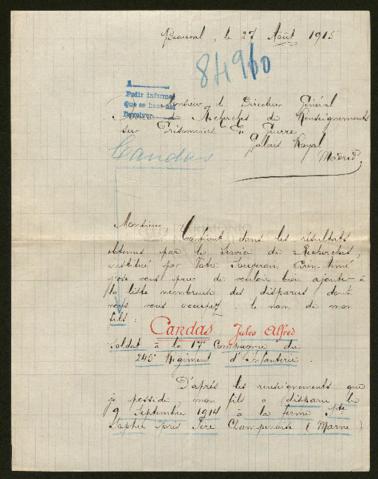 Beauval, le 27 Août 1915
84960
A
Pedir informes
Que se haga del
Candas
Monsieur le Directeur Général
Recherches de Renseignements
sur Prisonniers de Guerre
Palais Royal
Madrid
Monsieur,
Confiant dans les résultats
obtenus par le Service de Recherches,
institué par Votre Souverain bien-aimé
j'ose vous prier de vouloir bien ajouter à
la liste nombreuse des disparus dont
vous vous occupez le nom de mon
fils :
Candas Jules Alfred
soldat à la 17e Compagnie du
245e Régiment d'Infanterie.
D'après les renseignements que
je possède, mon fils a disparu le
9 Septembre 1914 à la ferme Ste
Sophie Fère Champenoise (Marne)